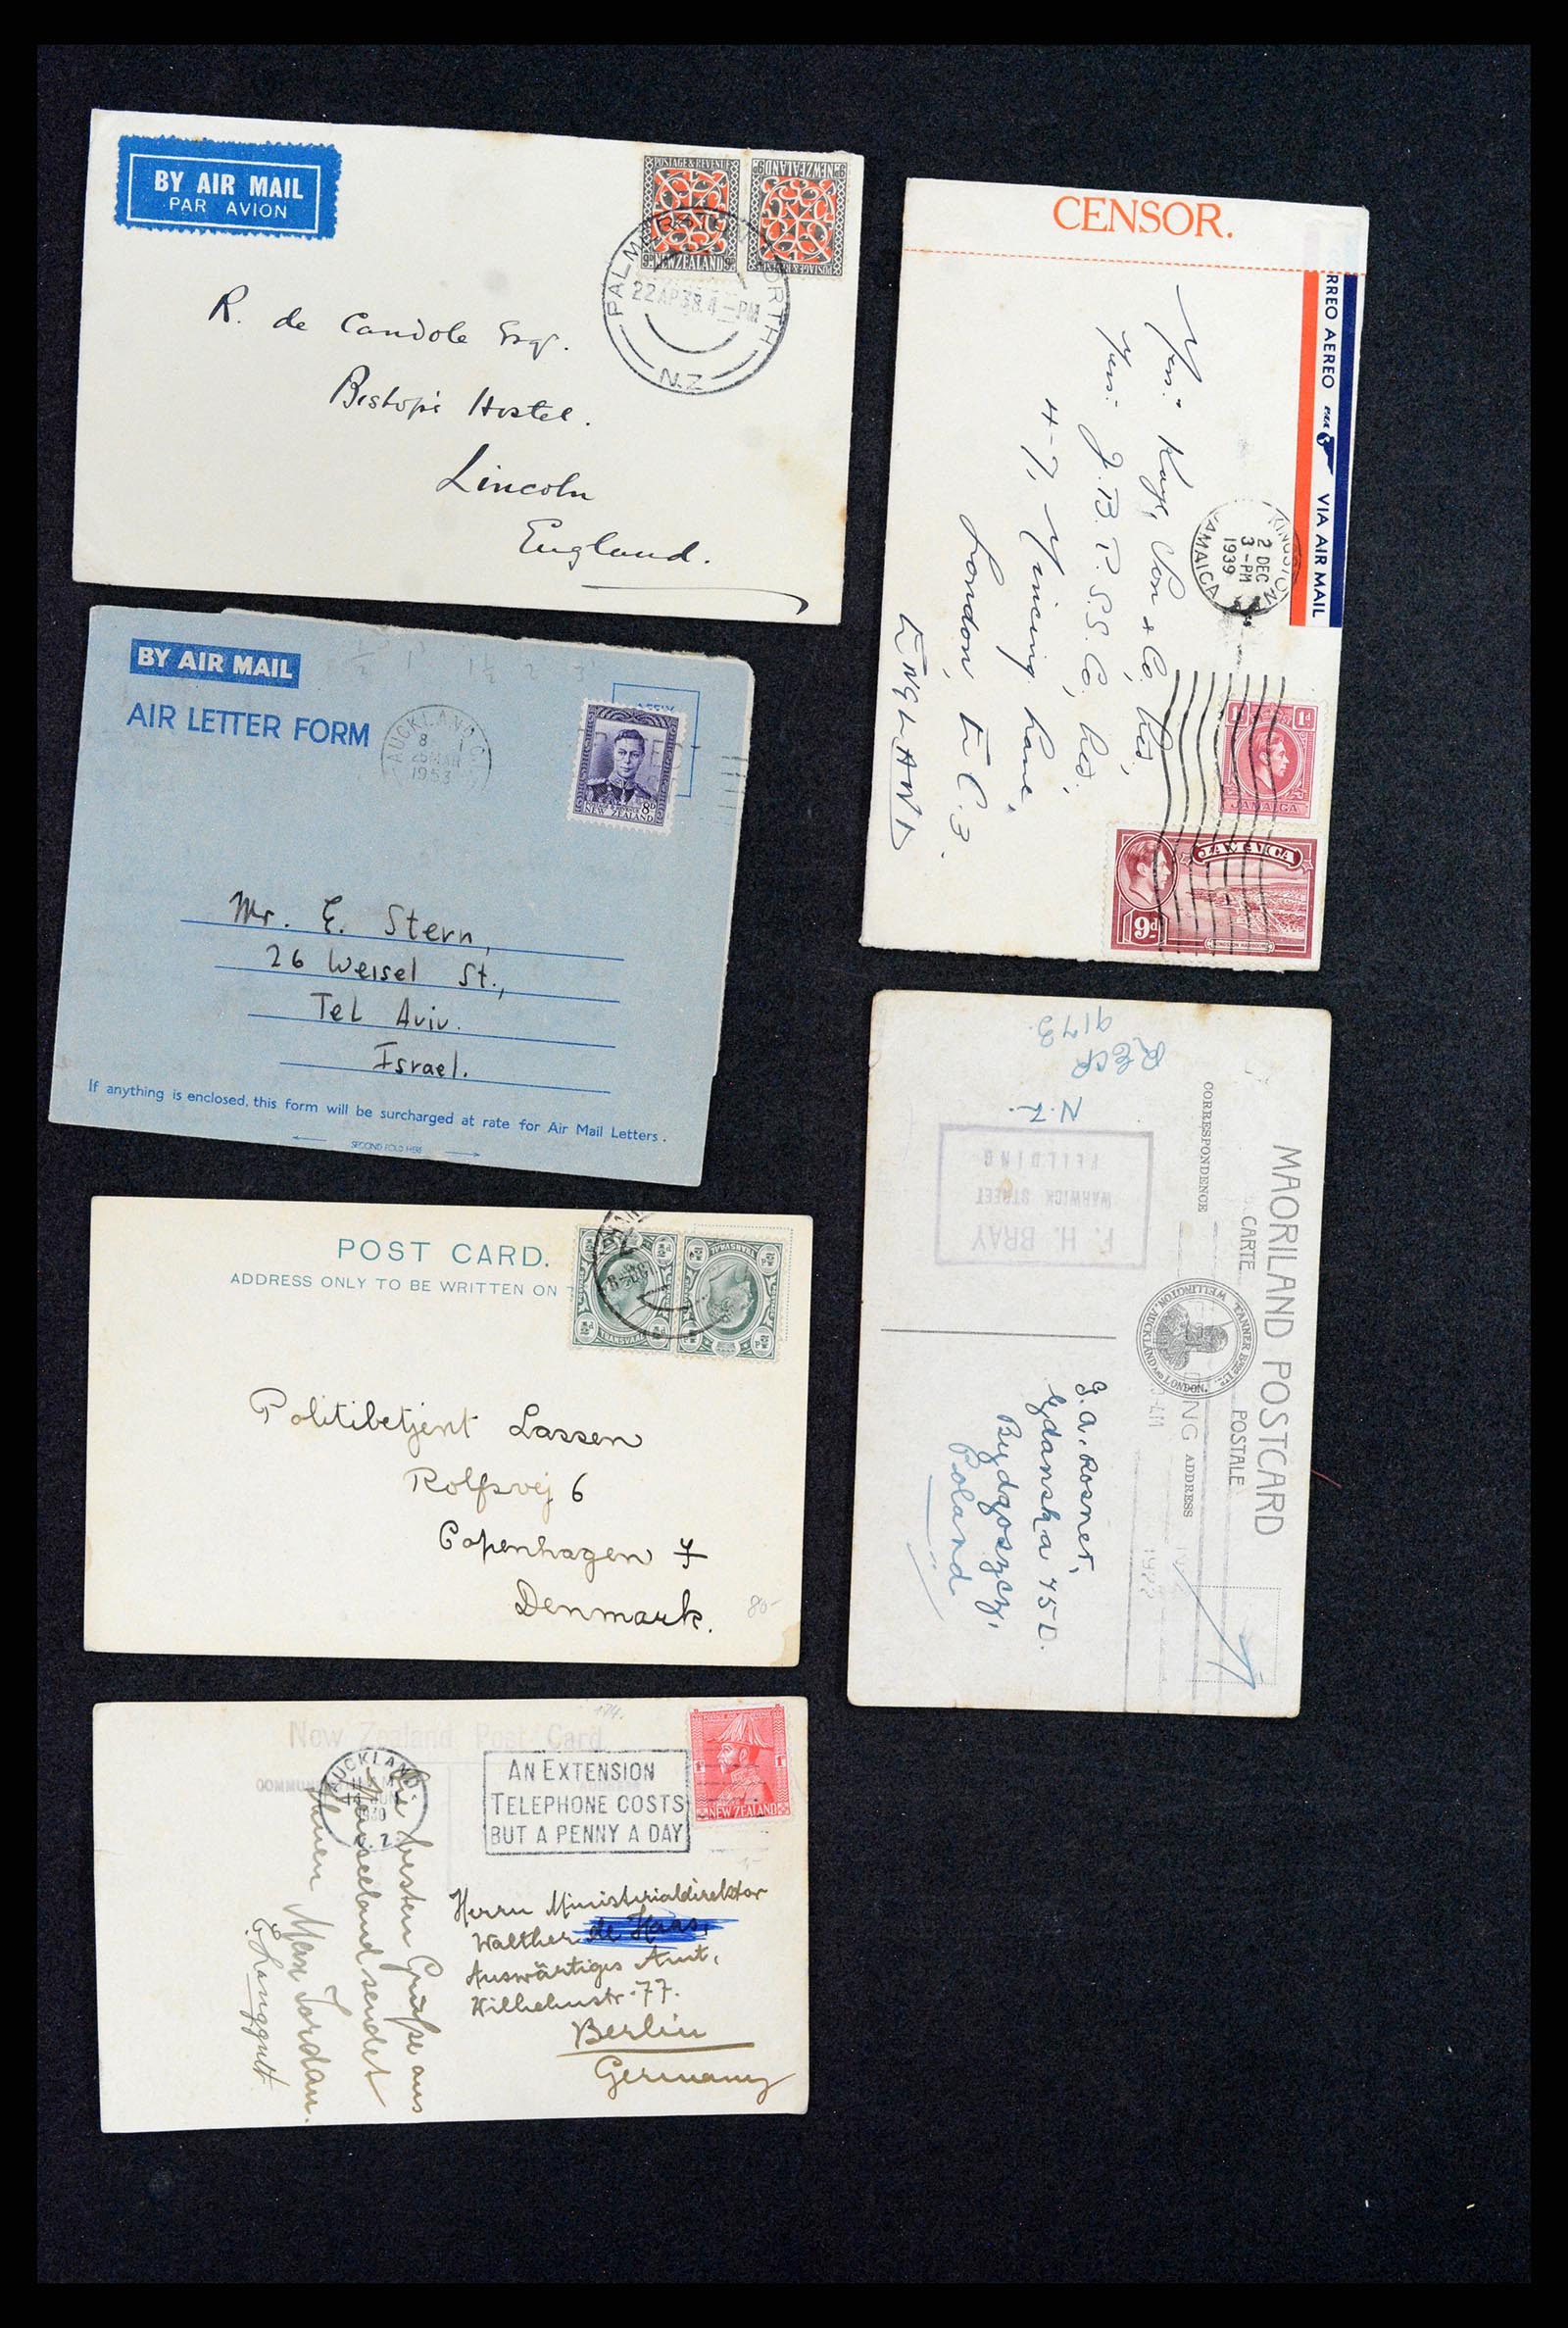 BY AIR MAIL
PAR AVION
POSTAGE & REVENUE
NEW ZEALAND
NEW ZEALAND
POSTAGE & REVENUE
PALMERSTON NORTH
22 AP 38. 4 - PM
N.Z.
R. de Candole Esq.
Bishop's Hostel.
Lincoln
England.
BY AIR MAIL
AIR LETTER FORM
½ 1 1½ 2 3
AUCKLAND C.
8
25 MAR
1953
8D
NEW ZEALAND
Mr. E. Stern,
26 Weisel St.,
Tel Aviv.
Israel.
If anything is enclosed, this form will be surcharged at rate for Air Mail Letters.
SECOND FOLD HERE
POST CARD.
ADDRESS ONLY TO BE WRITTEN ON
TRANSVAAL
TRANSVAAL
Politibetjent Lassen
Rolfsvej 6
Copenhagen F
Denmark.
80-
New Zealand Post Card
AUCKLAND
1930
N.Z.
AN EXTENSION
TELEPHONE COSTS
BUT A PENNY A DAY
1D 1D
NEW ZEALAND
Die besten Grüße aus
Neuseeland sendet
Ihnen Max Jordan.
Herrn Ministerialdirektor
Walther de Haas,
Auswärtiges Amt,
Wilhelmstr. 77.
Berlin
Germany
CENSOR.
RREO AEREO VIA AIR MAIL
KINGSTON
2 DEC
3 - PM
1939
JAMAICA
1d 1d
JAMAICA
JAMAICA
9d
KINGSTON HARBOUR
Messrs. Kaye, Son & Co. Ltd,
Messrs. J.B.P.S.S. Co, Ltd,
4-7, Mincing Lane,
London, E.C.3.
ENGLAND
MAORILAND POSTCARD
CARTE POSTALE
CORRESPONDENCE
ADDRESS
TANNER BROS LTD.
WELLINGTON, AUCKLAND & LONDON.
RECR
9173
N.Z.
F. H. BRAY
WARWICK STREET
FEILDING
G.A. Rosner,
Gdanska 45D.
Bydgoszcz,
Poland